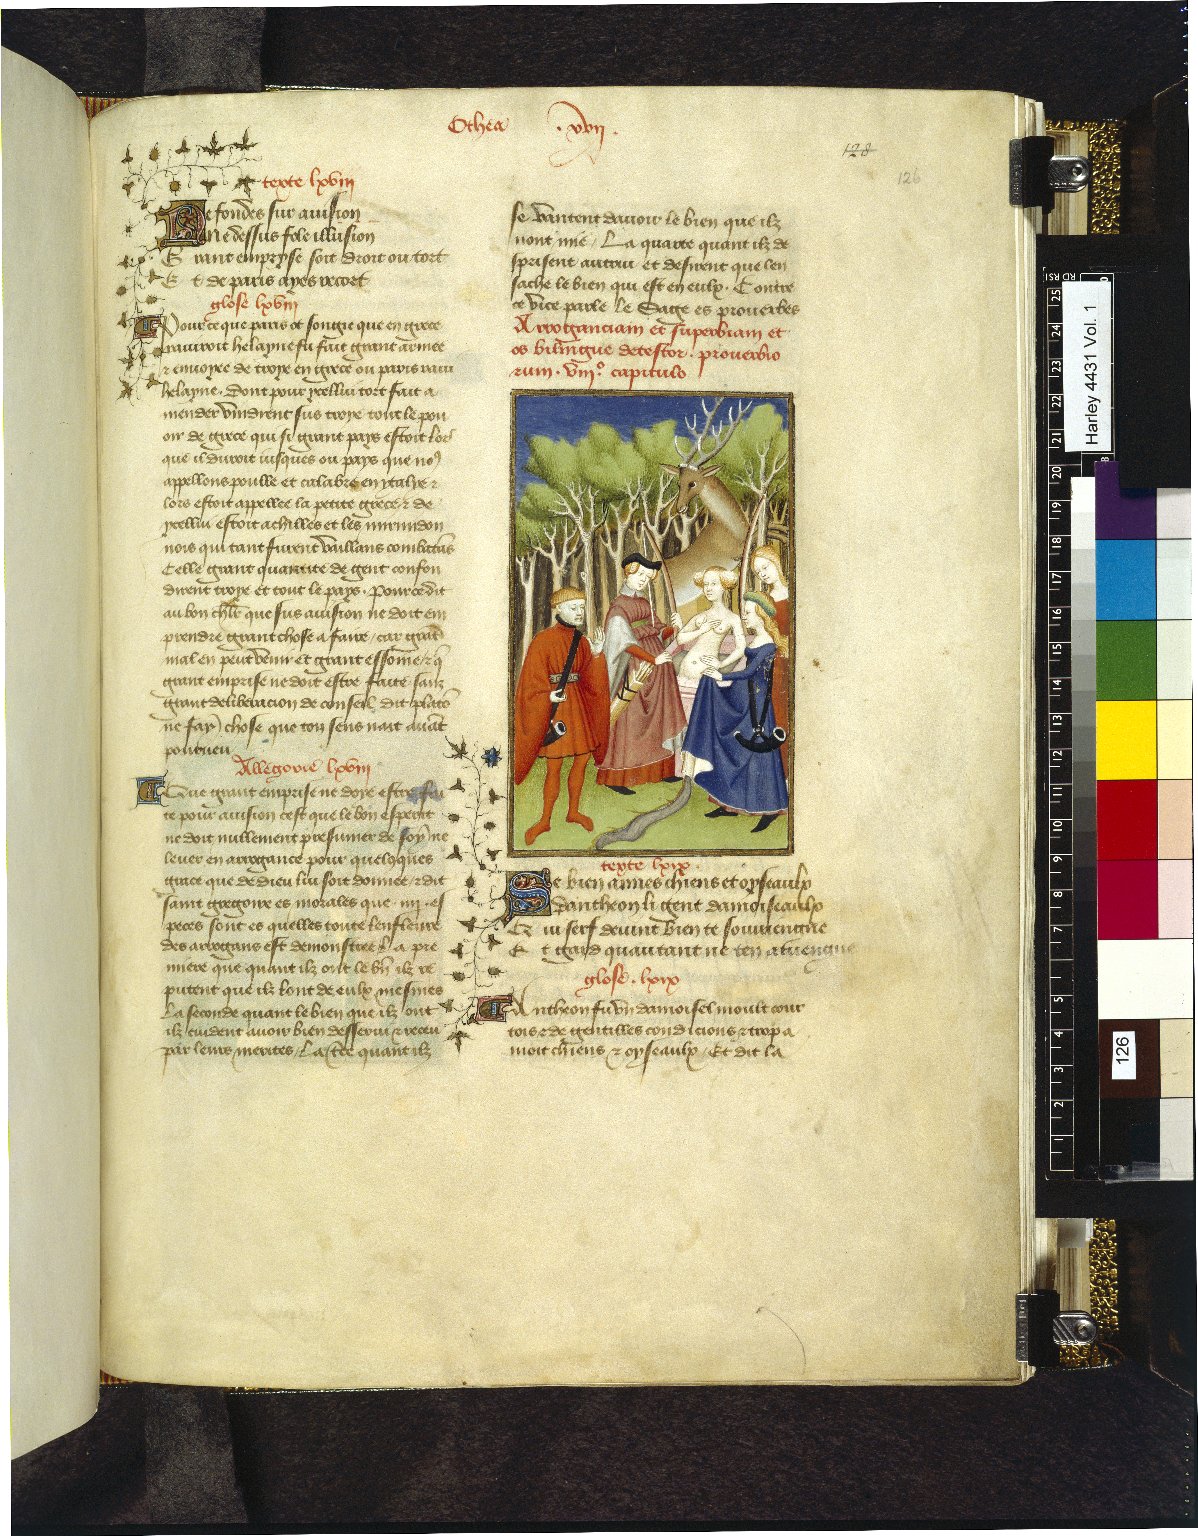 Othea . xvii .
128
126
texte lxviii
Ne fondes sur auision
Ne dessus fole illusion
Grant empryse soit droit ou tort
Et de paris ayes recort
glose lxviii
Pour ce que paris ot songie que en grece
rauiroit helayne fu fait grant armee
et enuoyee de troye en grece ou paris raui
helayne. Dont pour ycellui tort fait a
mender vindrent sus troye tout le pou
oir de grece qui si grant pays estoit lors
que il duroit iusques ou pays que nous
appellons poulle et calabre en ytalie et
lors estoit appellee la petite grece et de
ycellui estoit achilles et les mirmidon
nois qui tant furent vaillans combatans
Celle grant quantite de gent confon
dirent troye et tout le pays. Pour ce dit
au bon chlr que sus auision ne doit em
prendre grant chose a faire / car grant
mal en peut venir et grant essoine / et que
grant emprise ne doit estre faite sanz
grant deliberacion de conseil dit platon
ne fay chose que ton sens nait auant
pourueu
Allegorie lxviii
Que grant emprise ne doye estre fai
te pour auision cest que le bon esperit
ne doit nullement presumer de soy ne
leuer en arrogance pour quelquques
grace que de dieu lui soit donnee / et dit
saint gregoire es morales que .iiii. es
peces sont es quelles toute lenfleure
des arrogans est demonstree La pre
miere que quant ilz ont le bn ilz re
putent que ilz lont de eulx mesmes
La seconde quant le bien que ilz ont
ilz cuident auoir bien desserui et receu
par leurs merites / La tierce quant ilz
se vantent dauoir le bien que ilz
nont mie / La quarte quant ilz de
sprisent autrui et desirent que len
sache le bien qui est en eulx. Contre
ce vice parle le Sage es prouerbes
Arroganciam et superbiam et
os bilingue detestor. prouerbio
rum. viii.º capitulo
texte lxix.
Se bien aimes chiens et oyseaulx
Dantheon li gent damoiseaulx
Qui serf deuint bien te souuiengne
Et gard quautant ne ten aduiengne
glose. lxix
Antheon fu vn damoisel moult cour
tois et de gentilles condicions et trop a
moit chiens et oyseaulx / Et dit la
Harley 4431 Vol. 1
126